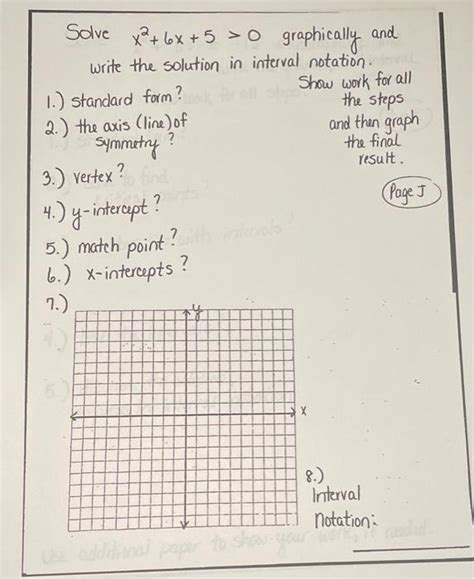 Solve x²+6x+5 > 0 graphically and
write the solution in interval notation.
Show work for all
the steps
and then graph
the final
result.
1.) standard form?
2.) the axis (line) of
symmetry?
3.) vertex?
4.) y-intercept?
5.) match point?
6.) x-intercepts?
Page J
7.)
y
x
8.)
Interval
Notation:
Use additional paper to show your work, if needed.